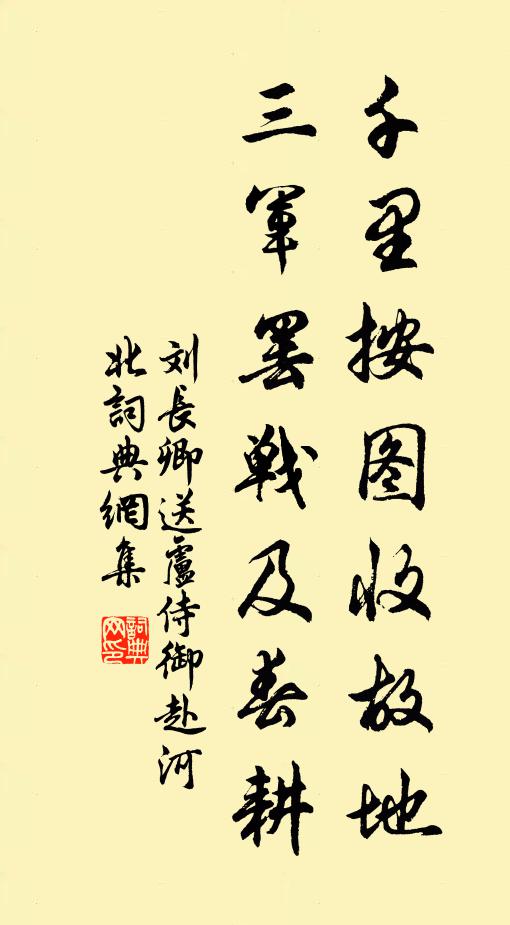 千里按图收故地
三军罢戦及春耕
刘長卿送盧侍御赴河
北詞典網集
詞典
网印